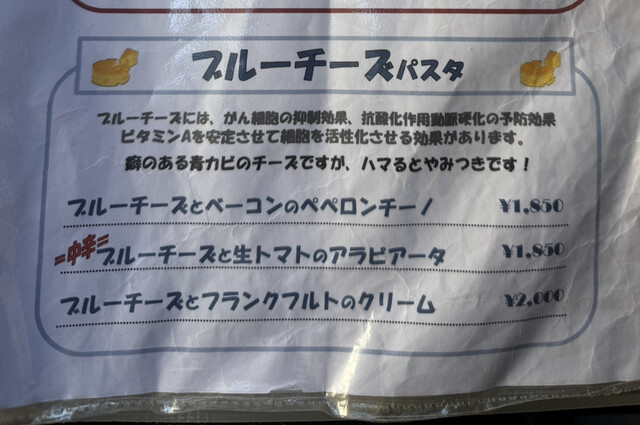 ブルーチーズパスタ
ブルーチーズには、がん細胞の抑制効果、抗酸化作用動脈硬化の予防効果
ビタミンAを安定させて細胞を活性化させる効果があります。
癖のある青カビのチーズですが、ハマるとやみつきです！
ブルーチーズとベーコンのペペロンチーノ ¥1,850
=中辛= ブルーチーズと生トマトのアラビアータ ¥1,850
ブルーチーズとフランクフルトのクリーム ¥2,000